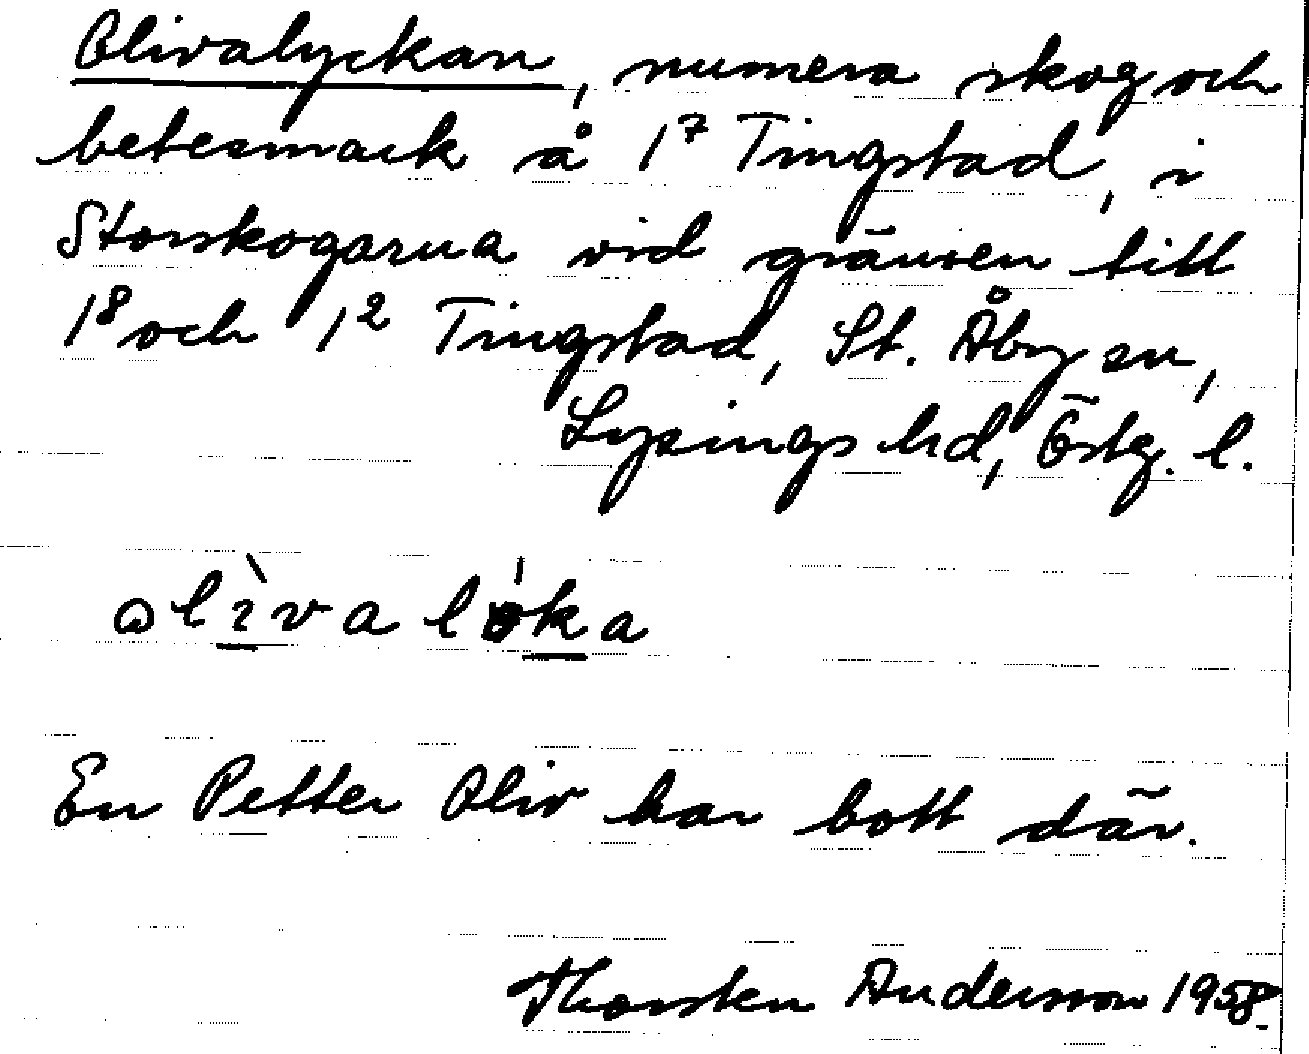 Olivalyckan, numera skog och
betesmark å 1⁷ Tingstad, i
Storskogarna vid gränsen till
1⁸ och 1² Tingstad, St. Åby sn,
Lysings hd, Östg. l.
En Petter Oliv har bott där.
Thorsten Andersson 1958.